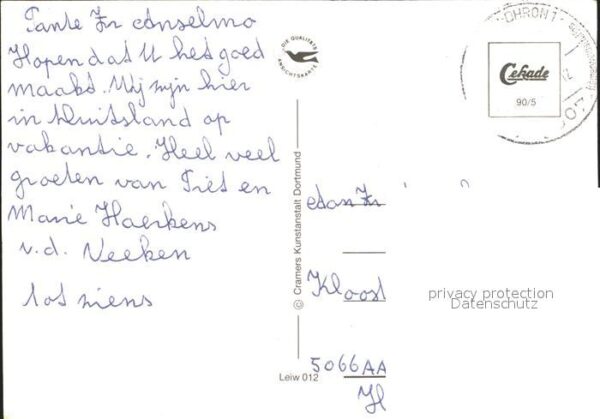 Tante Zr Anselmo
Hopen dat U het goed
maakt. Wij zijn hier
in Duitsland op
vakantie. Heel veel
groeten van Piet en
Marie Haerkens
v.d. Neeken
tot ziens
DIE QUALITÄTS
ANSICHTSKARTE
© Cramers Kunstanstalt Dortmund
Leiw 012
Cekade
90/5
OHRON 1
07
Zr
Kloost
5066AA
H
privacy protection
Datenschutz